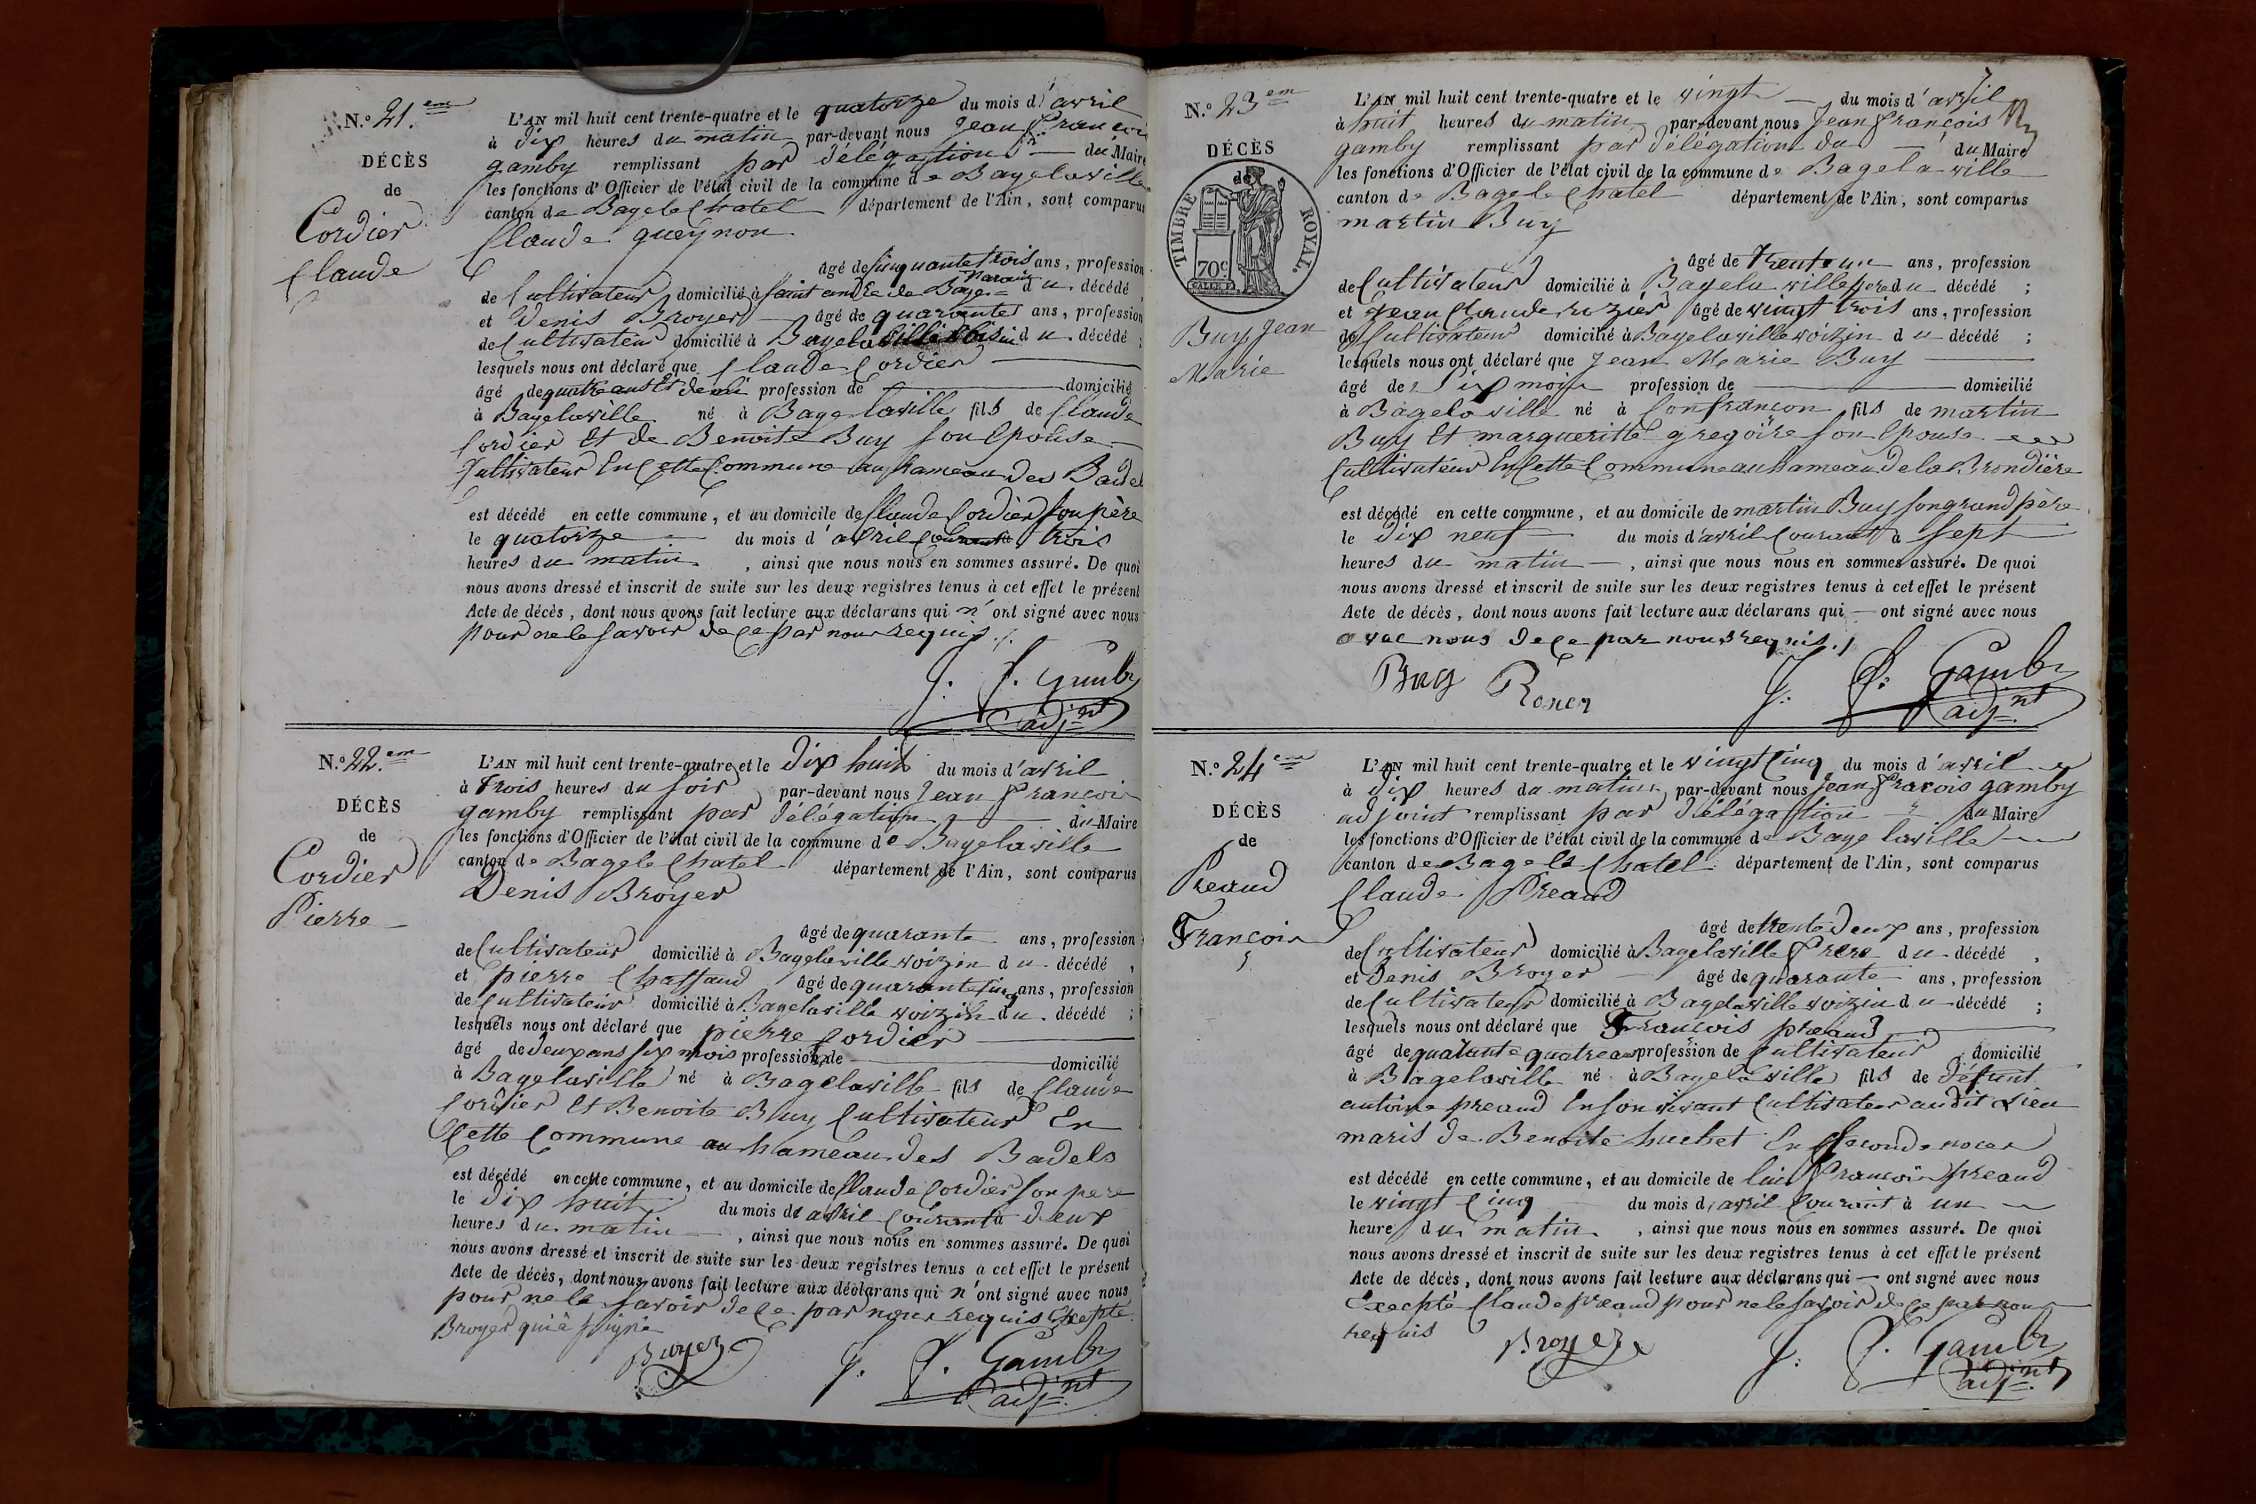 N.° 21.em
DÉCÈS
de
Cordier
Claude
L'AN mil huit cent trente-quatre et le quatorze du mois d'avril
à dix heures du matin par-devant nous Jean françois
gamby remplissant par délégation du Maire
les fonctions d'Officier de l'état civil de la commune de Bagelaville
canton de Bagele Chatel département de l'Ain, sont comparus
Claude gueynon
âgé de Cinquante trois ans, profession
de Cultivateur domicilié à saint andré de Bagé parain du décédé,
et Denis Broyer âgé de quarante ans, profession
de Cultivateur domicilié à Bagelaville voisin du décédé ;
lesquels nous ont déclaré que Claude Cordier
âgé de quatre ans et demi profession de domicilié
à Bagelaville né à Bagelaville fils de Claude
Cordier Et de Benoite Buy son Epouse
Cultivateur En Cette Commune au hameau des Badel
est décédé en cette commune, et au domicile de Claude Cordier son père
le quatorze du mois d'avril Courant à trois
heures du matin, ainsi que nous nous en sommes assuré. De quoi
nous avons dressé et inscrit de suite sur les deux registres tenus à cet effet le présent
Acte de décès, dont nous avons fait lecture aux déclarans qui n'ont signé avec nous
pour ne le savoir de Ce par nous requis ./.
J. f. Gamby
adj.nt
N.° 22.em
DÉCÈS
de
Cordier
Pierre
L'AN mil huit cent trente-quatre et le dix huit du mois d'avril
à trois heures du soir par-devant nous Jean françois
gamby remplissant par délégation du Maire
les fonctions d'Officier de l'état civil de la commune de Bagelaville
canton de Bagele Chatel département de l'Ain, sont comparus
Denis Broyer
âgé de quarante ans, profession
de Cultivateur domicilié à Bagelaville voizin du décédé,
et pierre Chaffaud âgé de quarante Cinq ans, profession
de Cultivateur domicilié à Bagelaville voizin du décédé ;
lesquels nous ont déclaré que pierre Cordier
âgé de deux ans six mois profession de domicilié
à Bagelaville né à Bagelaville fils de Claude
Cordier Et Benoite Buy Cultivateur En
Cette Commune au hameau des Badels
est décédé en cette commune, et au domicile de Claude Cordier son pere
le dix huit du mois de avril Courant à deux
heures du matin, ainsi que nous nous en sommes assuré. De quoi
nous avons dressé et inscrit de suite sur les deux registres tenus à cet effet le présent
Acte de décès, dont nous avons fait lecture aux déclarans qui n'ont signé avec nous
pour ne le savoir de Ce par nous requis Excepté
Broyer qui à signé
Broyer J. f. Gamby
adj.nt
N.° 23em
DÉCÈS
de
TIMBRE ROYAL.
70c
Buy Jean
Marie
L'AN mil huit cent trente-quatre et le vingt du mois d'avril
à huit heures du matin par-devant nous Jean françois
gamby remplissant par délégation du du Maire
les fonctions d'Officier de l'état civil de la commune de Bagelaville
canton de Bagele Chatel département de l'Ain, sont comparus
martin Buy
âgé de trente un ans, profession
de Cultivateur domicilié à Bagelaville pere du décédé ;
et Jean Claude rozier âgé de vingt trois ans, profession
de Cultivateur domicilié à Bagelaville voizin du décédé ;
lesquels nous ont déclaré que Jean Marie Buy
âgé de dix mois profession de domicilié
à Bagelaville né à Confrançon fils de martin
Buy Et margueritte gregoire son Epouse
Cultivateur En Cette Commune au hameau de la Brondière
est décédé en cette commune, et au domicile de martin Buy son grand père
le dix neuf du mois d'avril Courant à sept
heures du matin, ainsi que nous nous en sommes assuré. De quoi
nous avons dressé et inscrit de suite sur les deux registres tenus à cet effet le présent
Acte de décès, dont nous avons fait lecture aux déclarans qui — ont signé avec nous
avec nous de Ce par nous requis ./
Buy J. f. Gamby
adj.nt
N.° 24em
DÉCÈS
de
Preaud
François
L'AN mil huit cent trente-quatre et le vingt Cinq du mois d'avril
à dix heures du matin par-devant nous Jean fraçois gamby
adjoint remplissant par délégation du Maire
les fonctions d'Officier de l'état civil de la commune de Bagelaville
canton de Bagele Chatel département de l'Ain, sont comparus
Claude Preaud
âgé de trente deux ans, profession
de Cultivateur domicilié à Bagelaville frere du décédé,
et Denis Broyer âgé de quarante ans, profession
de Cultivateur domicilié à Bagelaville voizin du décédé ;
lesquels nous ont déclaré que François preaud
âgé de quarante quatre ans profession de Cultivateur domicilié
à Bagelaville né à Bagelaville fils de défunt
antoine preaud En son vivant Cultivateur audit Lieu
maris de Benoite huchet En seconde noces
est décédé en cette commune, et au domicile de lui François preaud
le vingt Cinq du mois d'avril Courant à un
heure du matin, ainsi que nous nous en sommes assuré. De quoi
nous avons dressé et inscrit de suite sur les deux registres tenus à cet effet le présent
Acte de décès, dont nous avons fait lecture aux déclarans qui — ont signé avec nous
Excepté Claude preaud pour ne le savoir de Ce par nous
requis
Broyer J. f. Gamby
adj.nt